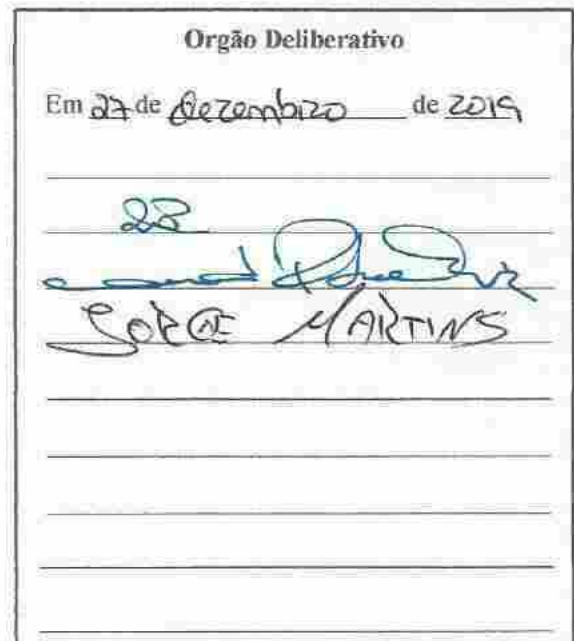 Orgão Deliberativo
Em 27 de dezembro de 2019
JORGE MARTINS